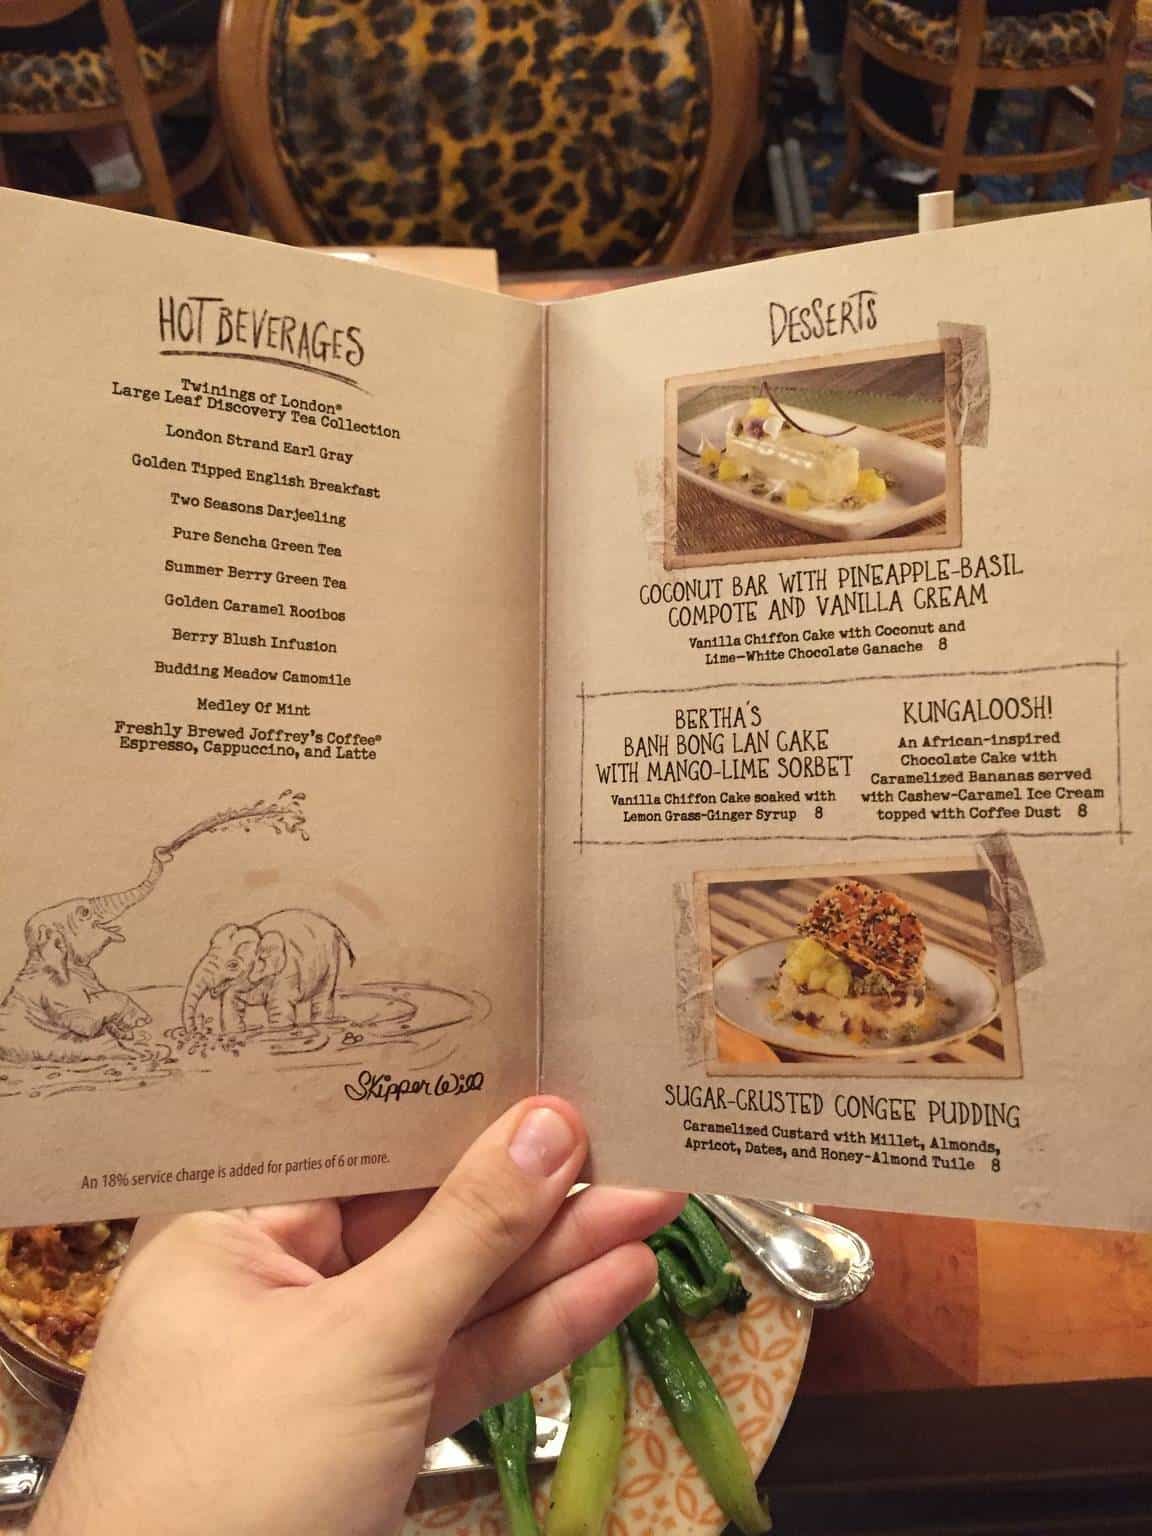 HOT BEVERAGES
Twinings of London®
Large Leaf Discovery Tea Collection
London Strand Earl Gray
Golden Tipped English Breakfast
Two Seasons Darjeeling
Pure Sencha Green Tea
Summer Berry Green Tea
Golden Caramel Rooibos
Berry Blush Infusion
Budding Meadow Camomile
Medley Of Mint
Freshly Brewed Joffrey's Coffee®
Espresso, Cappuccino, and Latte
Skipper Will
An 18% service charge is added for parties of 6 or more.
DESSERTS
COCONUT BAR WITH PINEAPPLE-BASIL
COMPOTE AND VANILLA CREAM
Vanilla Chiffon Cake with Coconut and
Lime-White Chocolate Ganache 8
BERTHA'S
BANH BONG LAN CAKE
WITH MANGO-LIME SORBET
Vanilla Chiffon Cake soaked with
Lemon Grass-Ginger Syrup 8
KUNGALOOSH!
An African-inspired
Chocolate Cake with
Caramelized Bananas served
with Cashew-Caramel Ice Cream
topped with Coffee Dust 8
SUGAR-CRUSTED CONGEE PUDDING
Caramelized Custard with Millet, Almonds,
Apricot, Dates, and Honey-Almond Tuile 8